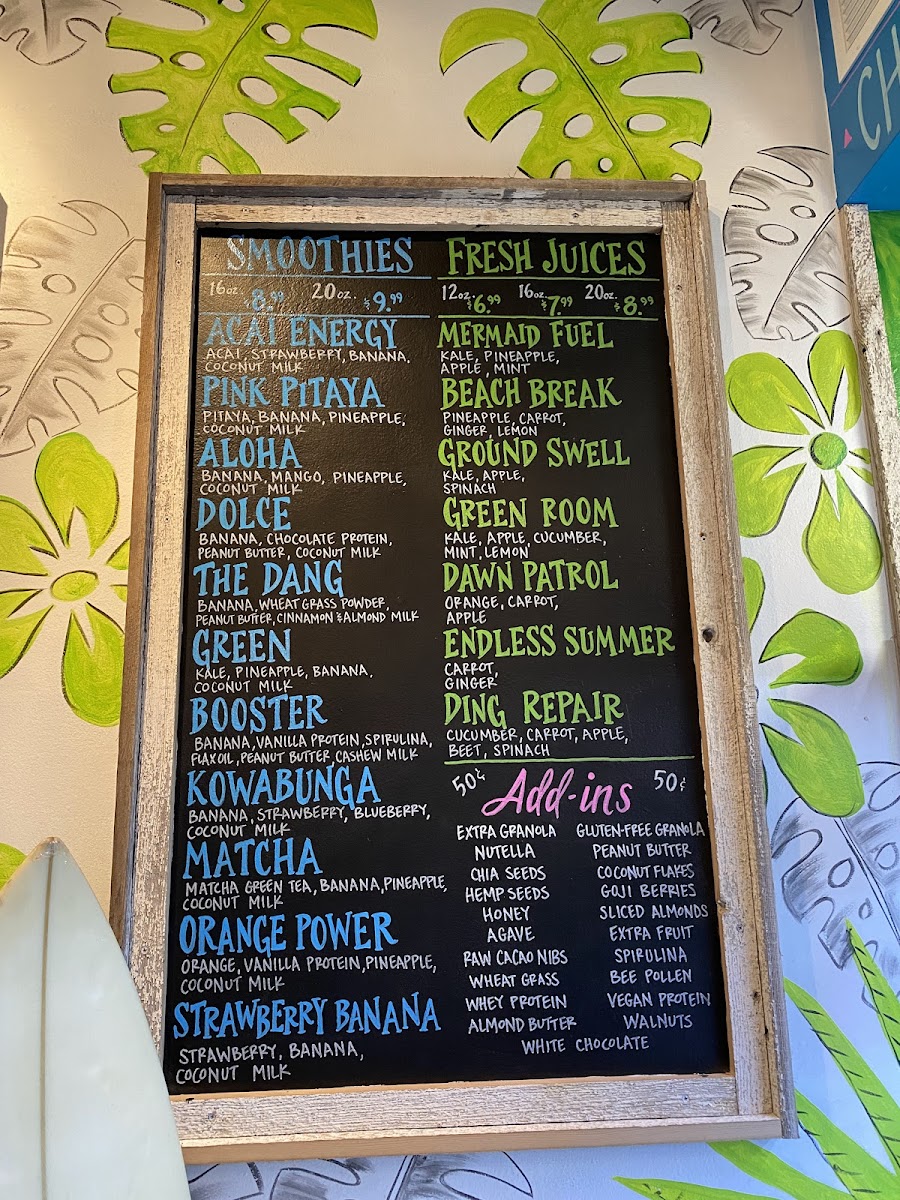 CH
SMOOTHIES
16oz. $8.99 20oz. $9.99
ACAI ENERGY
ACAI, STRAWBERRY, BANANA,
COCONUT MILK
PINK PITAYA
PITAYA, BANANA, PINEAPPLE,
COCONUT MILK
ALOHA
BANANA, MANGO, PINEAPPLE,
COCONUT MILK
DOLCE
BANANA, CHOCOLATE PROTEIN,
PEANUT BUTTER, COCONUT MILK
THE DANG
BANANA, WHEAT GRASS POWDER,
PEANUT BUTTER, CINNAMON & ALMOND MILK
GREEN
KALE, PINEAPPLE, BANANA,
COCONUT MILK
BOOSTER
BANANA, VANILLA PROTEIN, SPIRULINA,
FLAX OIL, PEANUT BUTTER, CASHEW MILK
KOWABUNGA
BANANA, STRAWBERRY, BLUEBERRY,
COCONUT MILK
MATCHA
MATCHA GREEN TEA, BANANA, PINEAPPLE,
COCONUT MILK
ORANGE POWER
ORANGE, VANILLA PROTEIN, PINEAPPLE,
COCONUT MILK
STRAWBERRY BANANA
STRAWBERRY, BANANA,
COCONUT MILK
FRESH JUICES
12oz. $6.99 16oz. $7.99 20oz. $8.99
MERMAID FUEL
KALE, PINEAPPLE,
APPLE, MINT
BEACH BREAK
PINEAPPLE, CARROT,
GINGER, LEMON
GROUND SWELL
KALE, APPLE,
SPINACH
GREEN ROOM
KALE, APPLE, CUCUMBER,
MINT, LEMON
DAWN PATROL
ORANGE, CARROT,
APPLE
ENDLESS SUMMER
CARROT,
GINGER
DING REPAIR
CUCUMBER, CARROT, APPLE,
BEET, SPINACH
50¢ Add-ins 50¢
EXTRA GRANOLA GLUTEN-FREE GRANOLA
NUTELLA PEANUT BUTTER
CHIA SEEDS COCONUT FLAKES
HEMP SEEDS GOJI BERRIES
HONEY SLICED ALMONDS
AGAVE EXTRA FRUIT
RAW CACAO NIBS SPIRULINA
WHEAT GRASS BEE POLLEN
WHEY PROTEIN VEGAN PROTEIN
ALMOND BUTTER WALNUTS
WHITE CHOCOLATE